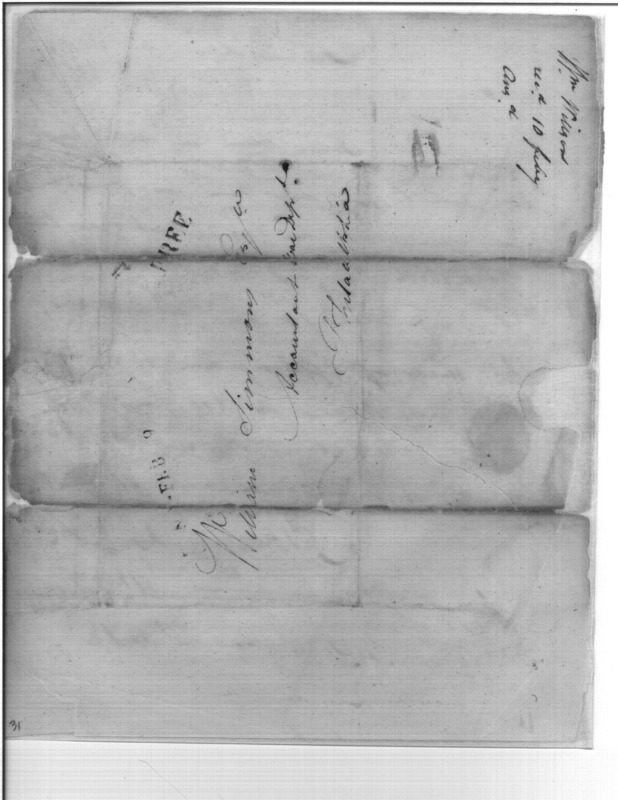 Wm Wilson
recd 10 Feby
Ansd
FREE
FEB 9
Mr
William Simmons Esqr
Accountant War Dept
Philadelphia
31